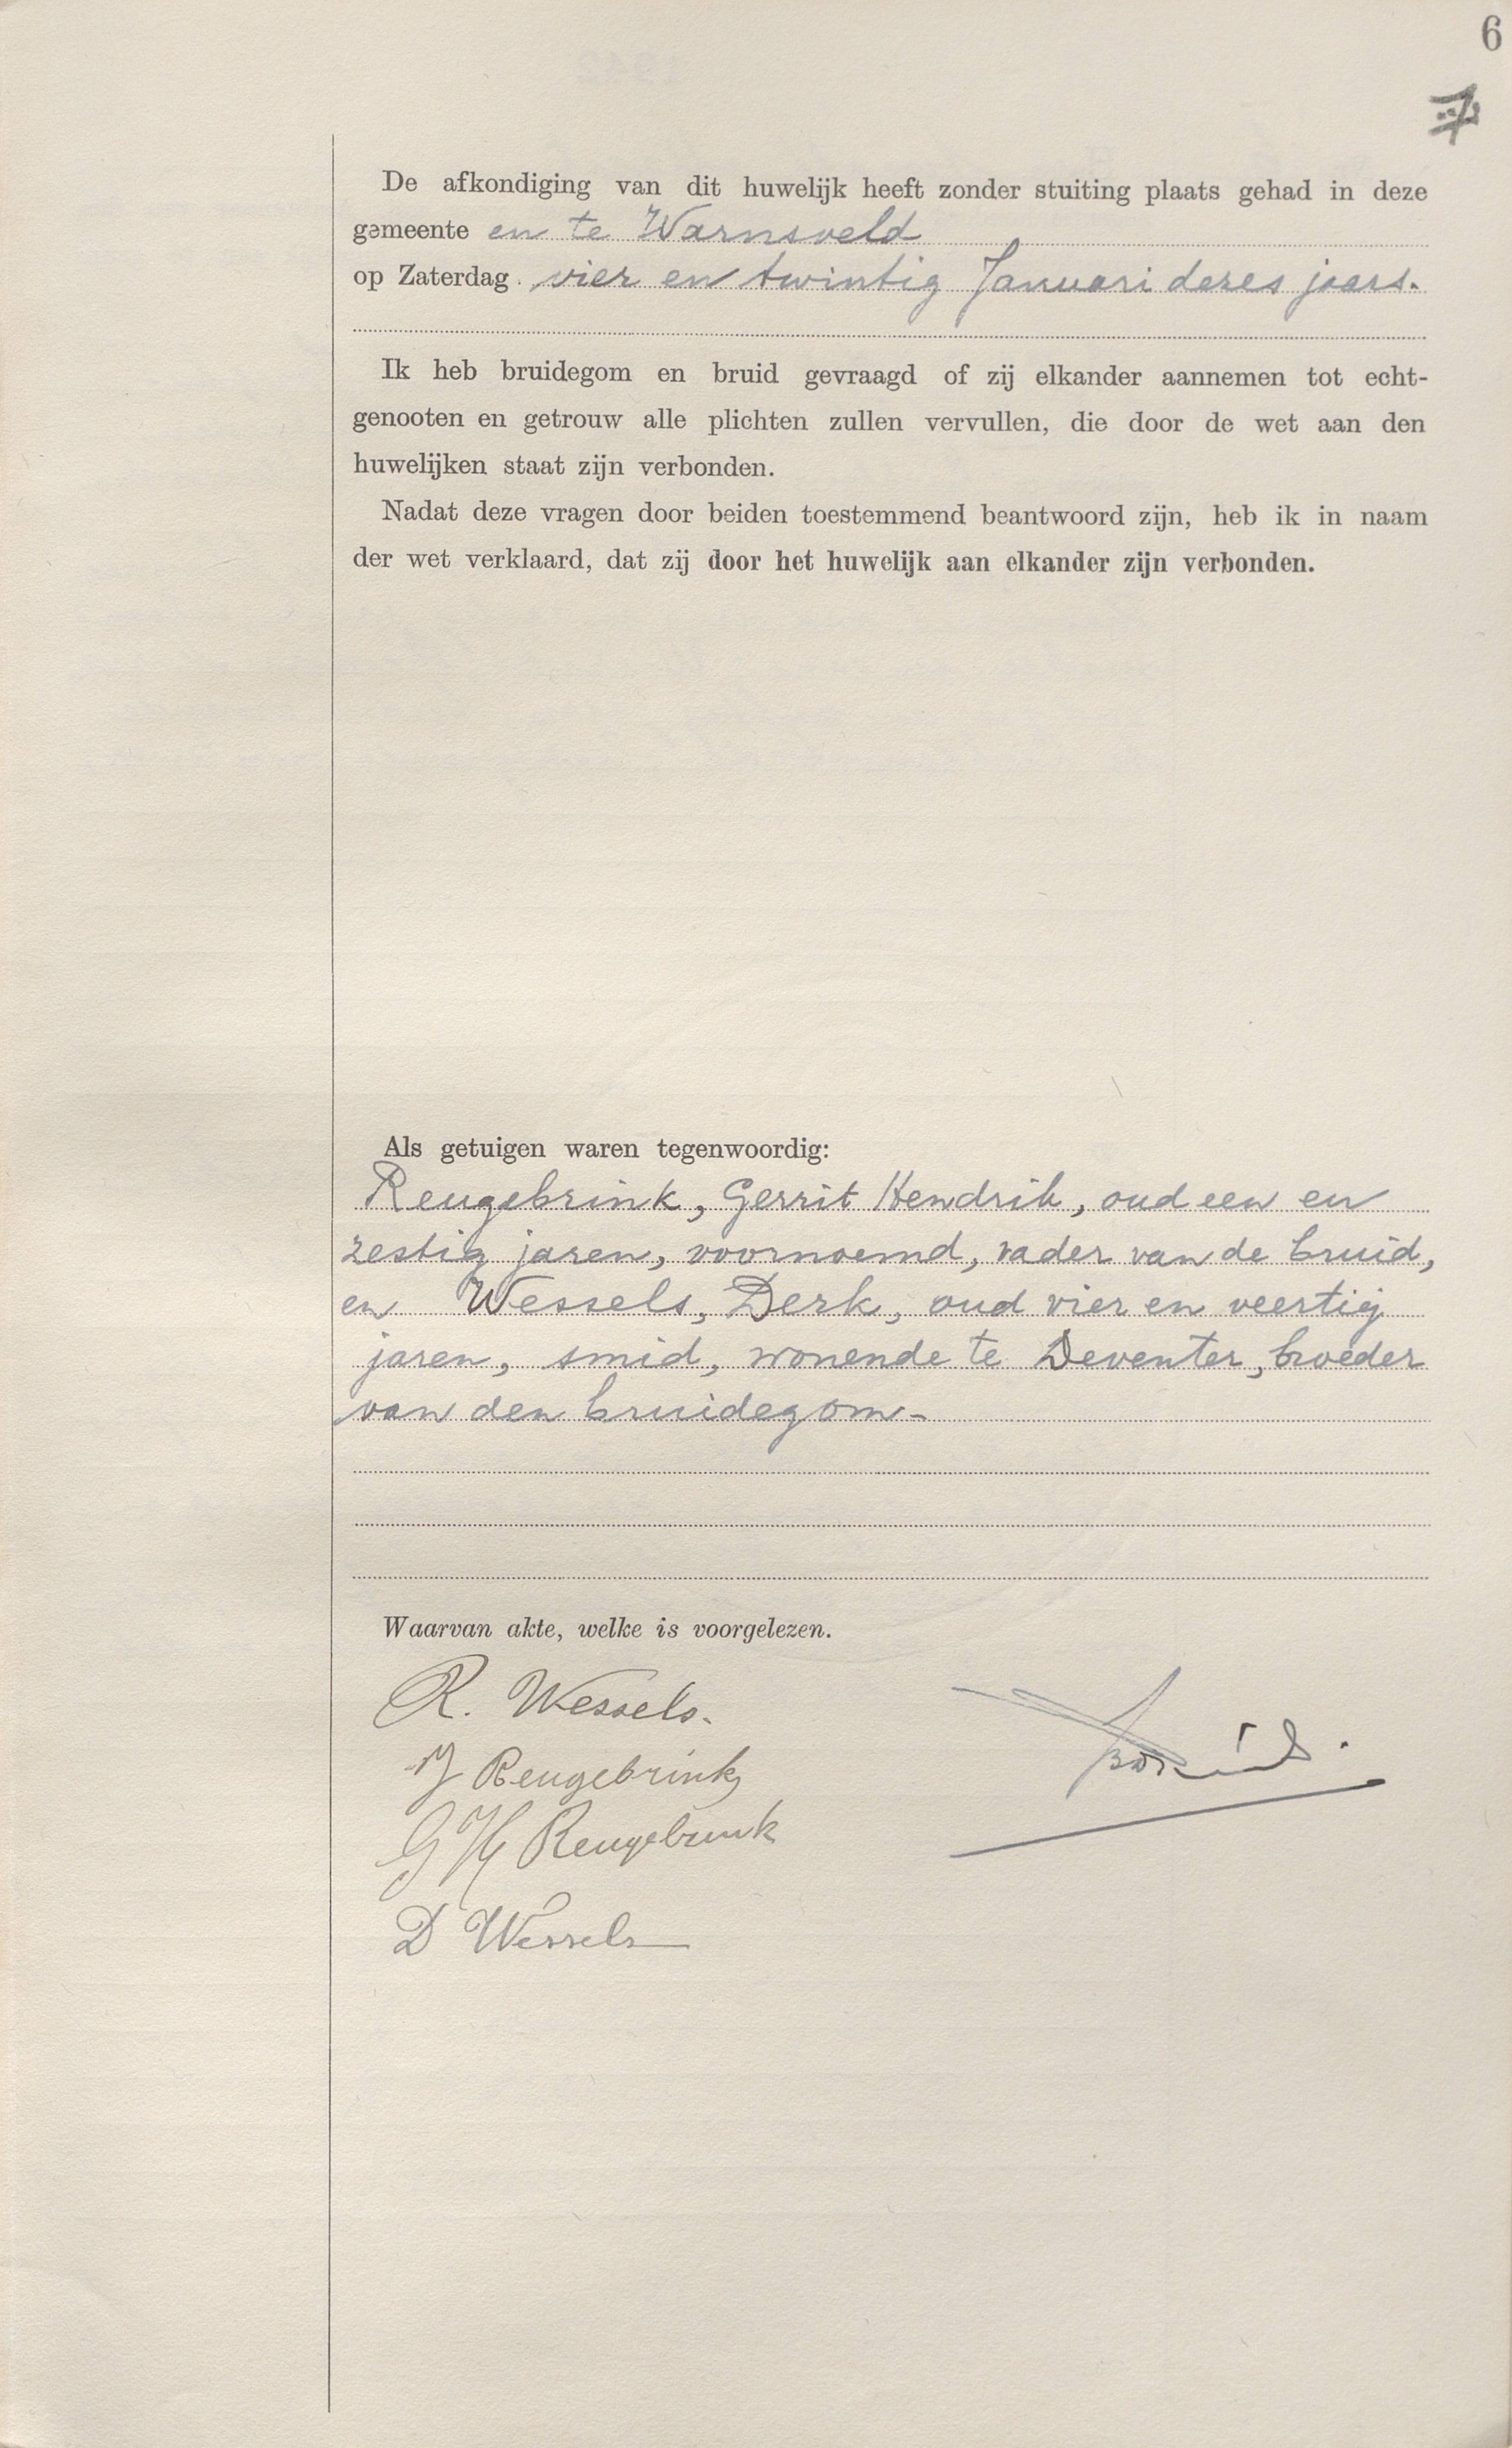 6
De afkondiging van dit huwelijk heeft zonder stuiting plaats gehad in deze
gemeente en te Warnsveld
op Zaterdag vier en twintig Januari dezes jaars.
Ik heb bruidegom en bruid gevraagd of zij elkander aannemen tot echt-
genooten en getrouw alle plichten zullen vervullen, die door de wet aan den
huwelijken staat zijn verbonden.
Nadat deze vragen door beiden toestemmend beantwoord zijn, heb ik in naam
der wet verklaard, dat zij door het huwelijk aan elkander zijn verbonden.
Als getuigen waren tegenwoordig:
Reugebrink, Gerrit Hendrik, oud een en
zestig jaren, voornoemd, vader van de bruid,
en Wessels, Derk, oud vier en veertig
jaren, smid, wonende te Deventer, broeder
van den bruidegom.
Waarvan akte, welke is voorgelezen.
R. Wessels.
J Reugebrink
G H Reugebrink
D Wessels